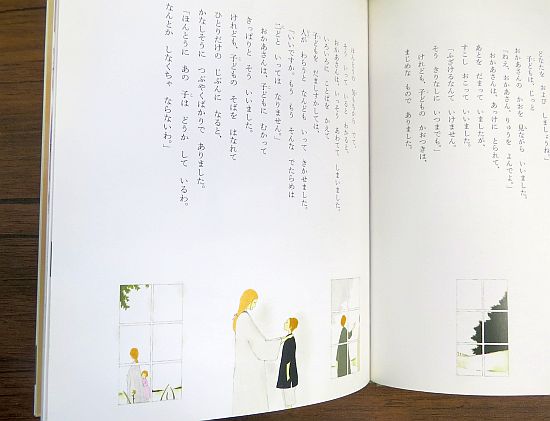 どなたを およびしましょうね。」
子どもは じっと
おかあさんの かおを 見ながら いいました。
「ねえ、おかあさん、りゅうを よんでよ。」
おかあさんは、あっけに とられて、
あとを だまって いましたが、
すこし おこって いいました。
「ふざけるなんて いけません。
そう きさくなしに いつまでも。」
けれども、子どもの かおつきは、
まじめな もので ありました。
ほんとうの 気もちから で、
そう いって いると わかると、
おかあさんは、いっそう あわてて しまいました。
いろいろに ことばを かえて
子どもを だましすかしては、
人が わらうと なんども いって きかせました。
「いいですか。もう、もう そんな でたらめは
二どと いっては なりません。」
きっぱりと そう いいました。
おかあさんは、子どもに むかって
けれども、子どもの そばを はなれて
ひとりだけの じぶんに なると、
かなしそうに つぶやくばかりで ありました。
「ほんとうに あの 子は どうかして いるわ。
なんとか しなくちゃ ならないわ。」